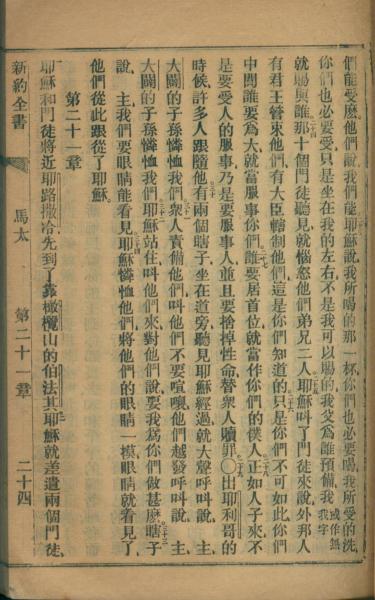 們能受麽他們說我們能耶穌說我所喝的那一杯你們也必要喝我所受的洗
你們也必要受只是坐在我的左右不是我可以賜的我父爲誰預備我
或作無我字
就賜與誰那十個門徒聽見就惱怒他們弟兄二人耶穌叫了門徒來說外邦人
二十四
二十五
有君王管束他們有大臣轄制他們這是你們知道的只是你們不可如此你們
二十六
中間誰要爲大就當服事你們誰要居首位就當作你們的僕人正如人子來不
二十七
二十八
是要受人的服事乃是要服事人並且要捨掉性命替衆人贖罪〇出耶利哥的
二十九
時候許多人跟隨他有兩個瞎子坐在道旁聽見耶穌經過就大聲呼叫說主
三十
大闢的子孫憐恤我們衆人責備他們叫他們不要喧嚷他們越發呼叫說主
三十一
大闢的子孫憐恤我們耶穌站住叫他們來對他們說要我爲你們做甚麽瞎子
三十二
三十三
說主我們要眼睛能看見耶穌憐恤他們將他們的眼睛一摸眼睛就看見了
三十四
他們從此跟從了耶穌
第二十一章
耶穌和門徒將近耶路撒冷先到了靠橄欖山的伯法其耶穌就差遣兩個門徒
新約全書
馬太
第二十一章
二十四